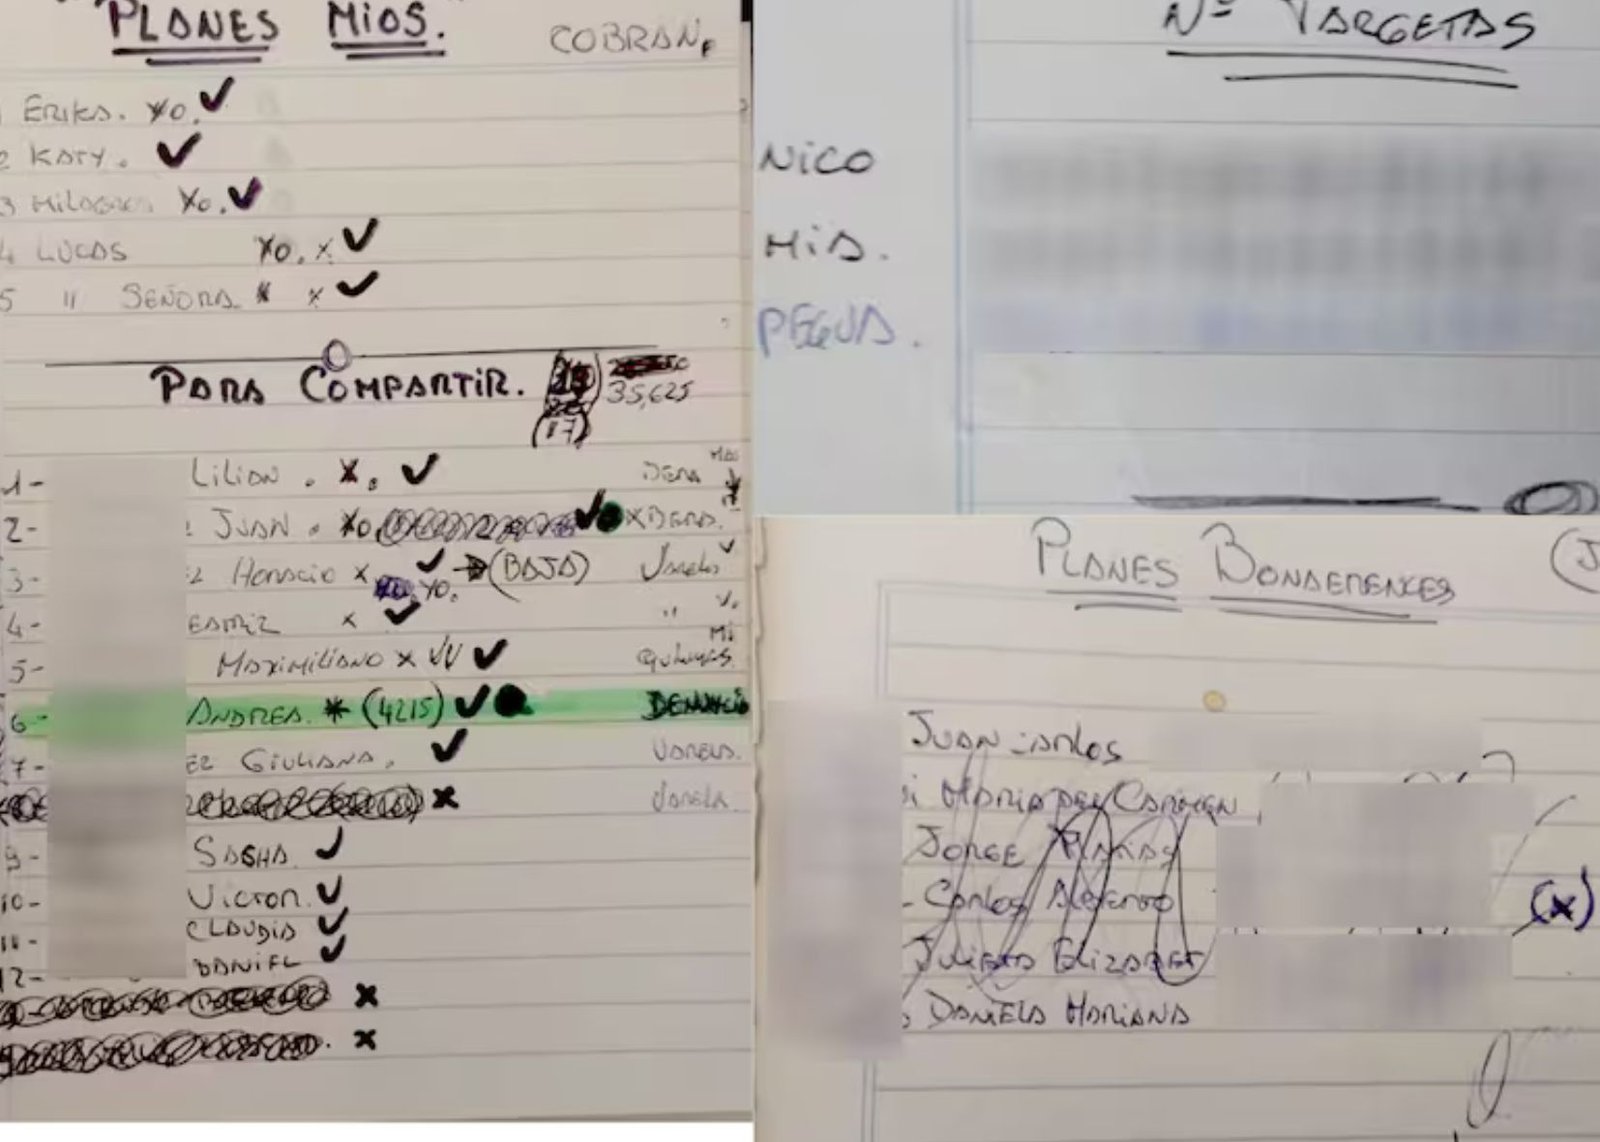 "PLANES MIOS."
COBRAN
1 ERIKA. YO. ✓
2 KATY. ✓
3 MILAGROS YO. ✓
4 LUCAS YO. x ✓
5 " SEÑORA x ✓
PARA COMPARTIR.
35,625
(17)
1- LILIAN. X. ✓ BERA
2- JUAN. YO ✓ X BERA.
3- HORACIO x ✓ → (BAJA) VARELA ✓
YO.
4- x ✓ "
5- MAXIMILIANO x ✓✓ ✓ QUILMES
6- ANDREA. * (4215) ✓ DENUNCIÓ
7- EZ GIULIANA. ✓ VARELA.
X VARELA
9- SASHA ✓
10- VICTOR. ✓
11- CLAUDIA ✓
12- DANIEL ✓
X
X
Nº TARGETAS
NICO
MIA.
PEGUA.
PLANES BONAERENCES
JUAN CARLOS
MARIA DEL CARMEN
JORGE
- CARLOS ALBERTO (X)
JULIETA ELIZABET
DANIELA MARIANA